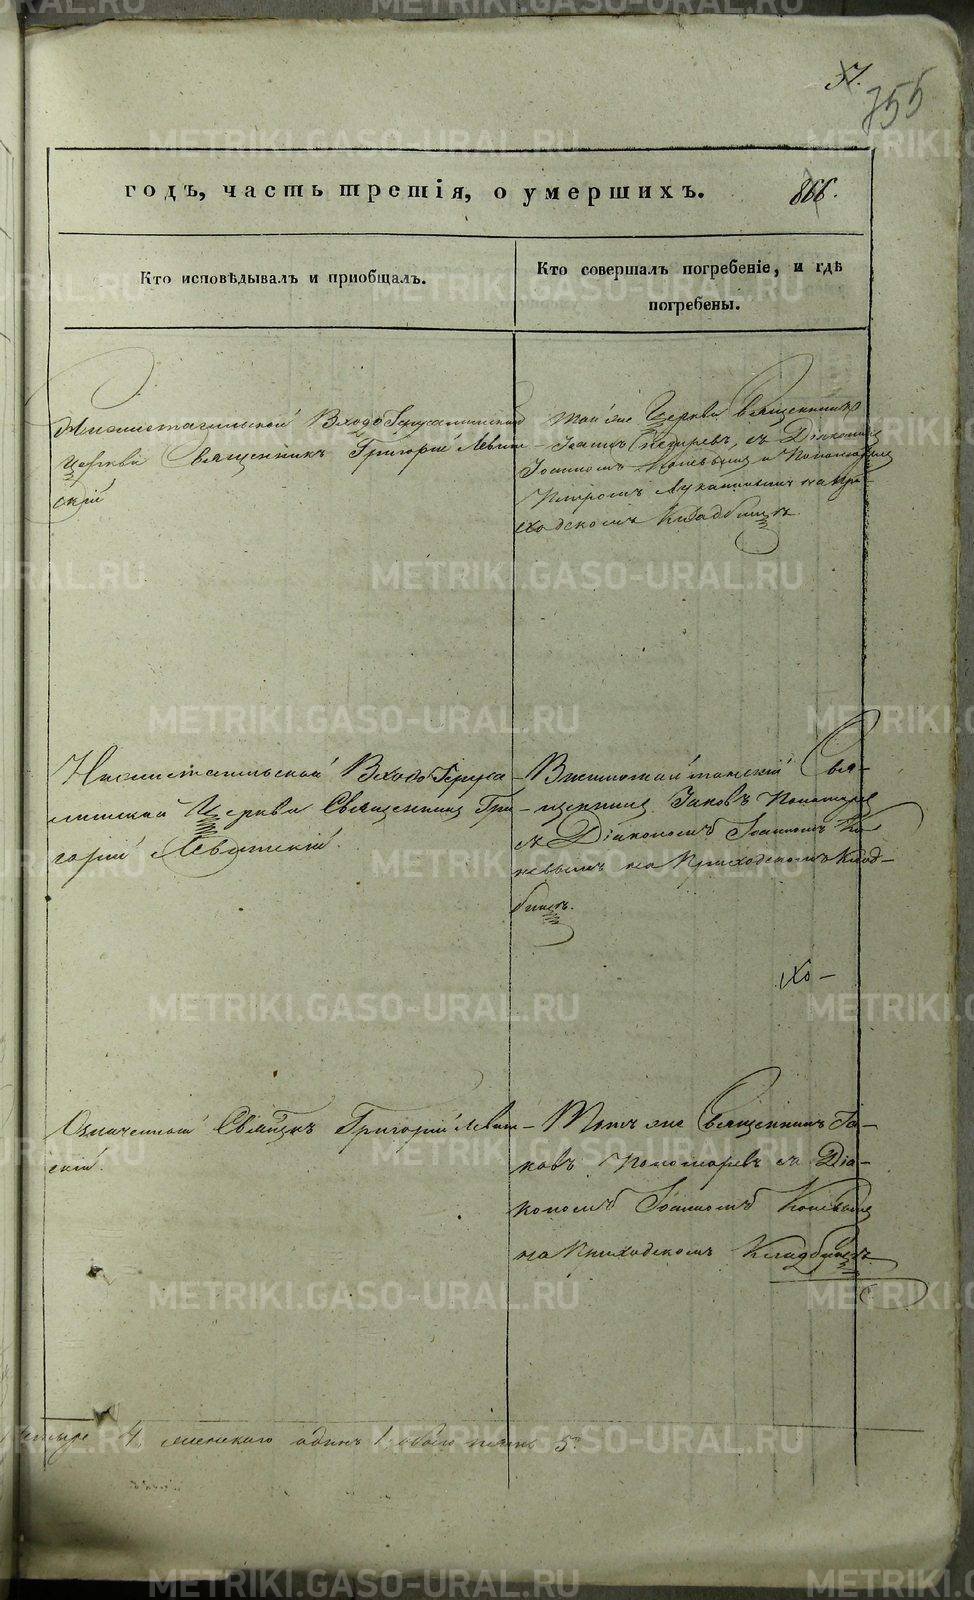 57.
755
годъ, часть третія, о умершихъ.
866.
Кто исповѣдывалъ и пріобщалъ.
Кто совершалъ погребеніе, и гдѣ
погребены.
Нижнетагильской Входо Іерусалимской
Церкви Священникъ Григорій Левит-
скій
Той же Церкви Священникъ
Іоаннъ съ Діакономъ
Іоанномъ Коневымъ и Пономаремъ
Петромъ на при-
ходскомъ Кладбищѣ.
Нижнетагильской Входо Іеруса-
лимской Церкви Священникъ Гри-
горій Левитскій.
Свя-
щенникъ Іаковъ Пономаревъ
съ Діакономъ Іоанномъ Ко-
невымъ на Приходскомъ Клад-
бищѣ.
Означенной Священникъ Григорій Левит-
скій.
Тотъ же Священникъ Іа-
ковъ Пономаревъ съ Діа-
кономъ Іоанномъ Коневымъ
на Приходскомъ Кладбищѣ.
четыре 4, женскаго одинъ 1, обоего пола 5.
METRIKI.GASO-URAL.RU